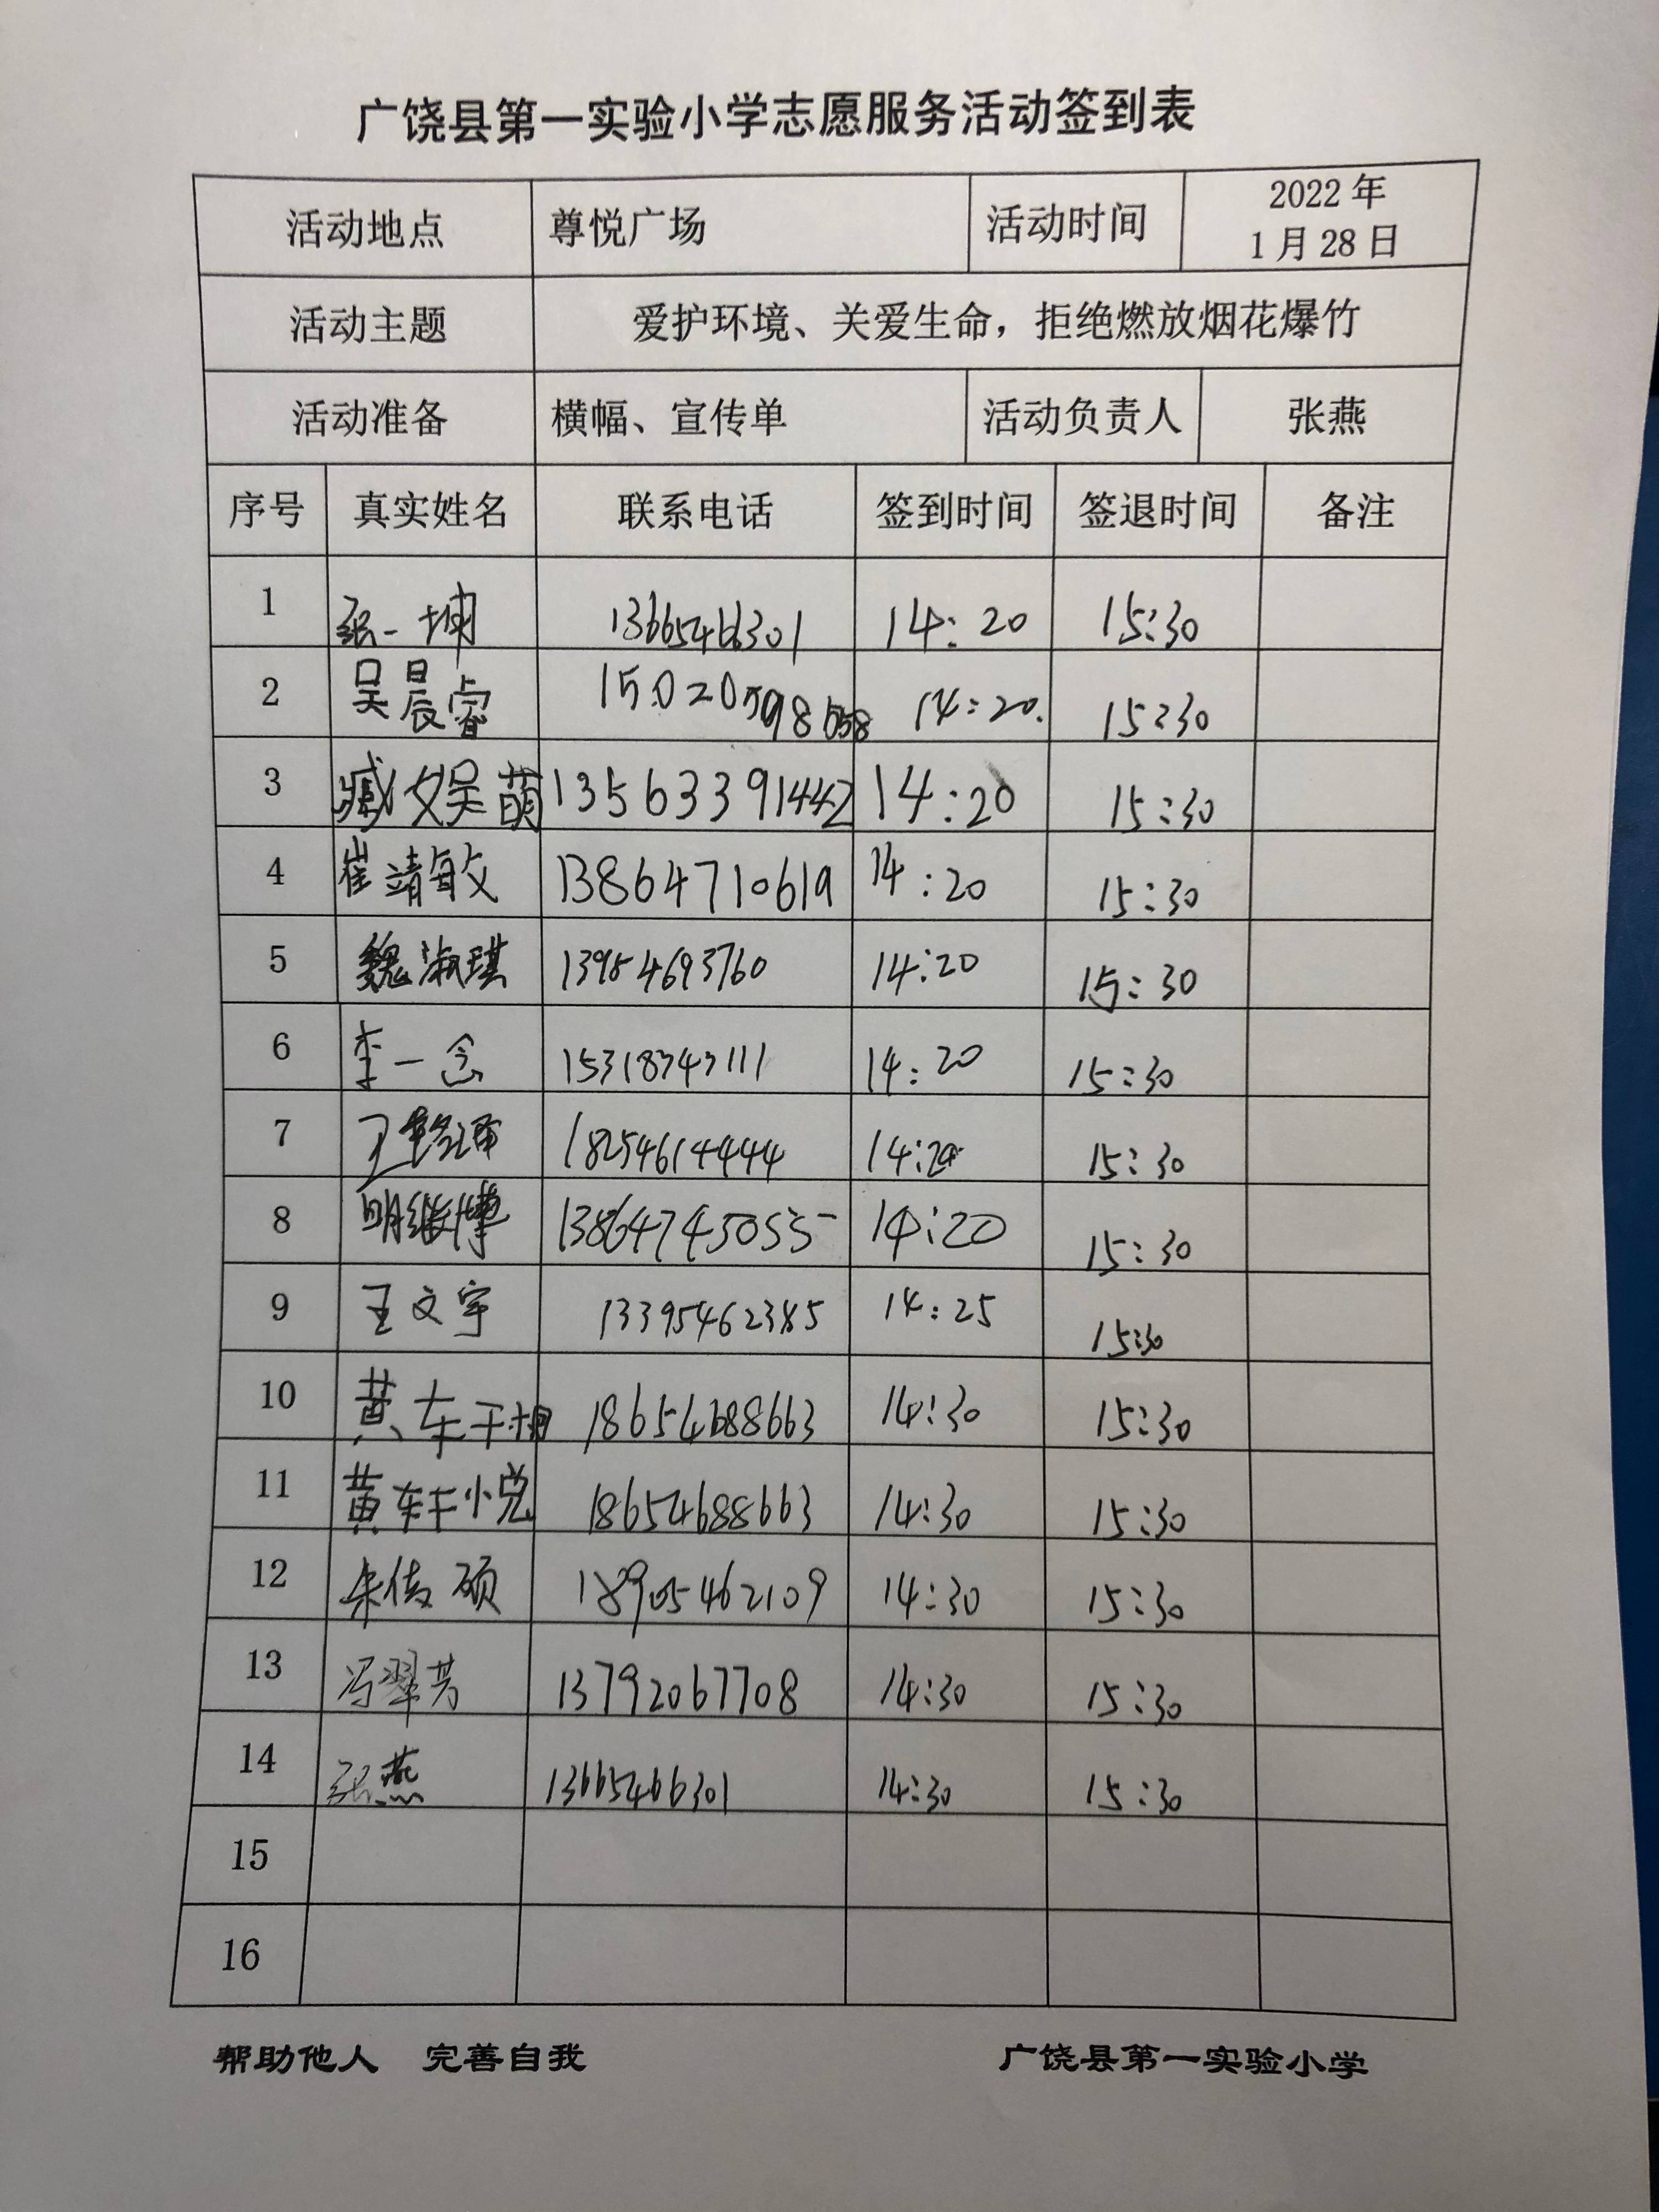 广饶县第一实验小学志愿服务活动签到表
活动地点 尊悦广场 活动时间 2022 年
1 月 28 日
活动主题 爱护环境、关爱生命，拒绝燃放烟花爆竹
活动准备 横幅、宣传单 活动负责人 张燕
序号 真实姓名 联系电话 签到时间 签退时间 备注
1 张一坤 13665466301 14:20 15:30
2 吴晨睿 14:20. 15:30
3 臧娱萌 13563391442 14:20 15:30
4 崔靖敏 13864710619 14:20 15:30
5 魏淑琪 13954693760 14:20 15:30
6 李一念 15318343111 14:20 15:30
7 王 18254614444 14:20 15:30
8 明继博 13864745055 14:20 15:30
9 王文宇 13395462385 14:25 15:30
10 黄 18654688663 14:30 15:30
11 黄轩小悦 18654688663 14:30 15:30
12 朱传硕 18905462109 14:30 15:30
13 冯翠芳 13792067708 14:30 15:30
14 张燕 13665466301 14:30 15:30
15
16
帮助他人 完善自我 广饶县第一实验小学